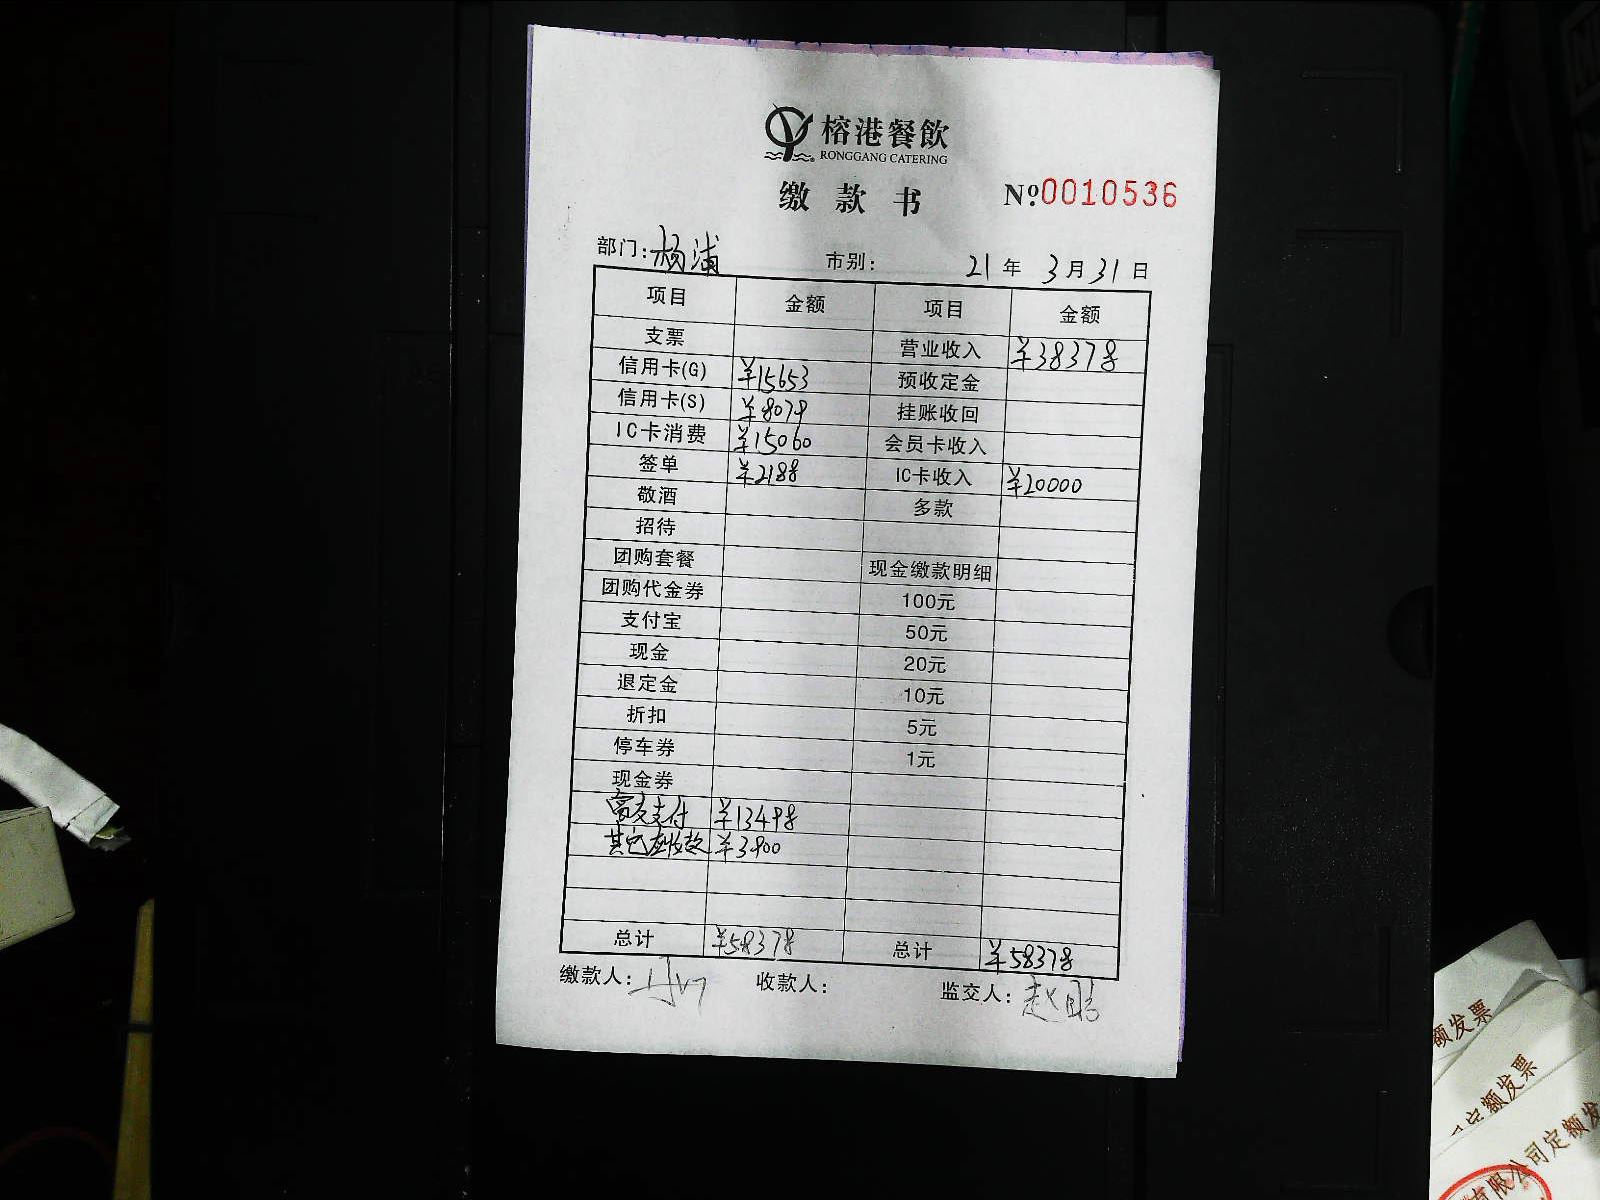 榕港餐飲
RONGGANG CATERING
缴款书 №0010536
部门:杨浦 市别: 21年3月31日
项目 金额 项目 金额
支票 营业收入 ¥38378
信用卡(G) ¥15653 预收定金
信用卡(S) ¥8079 挂账收回
IC卡消费 ¥15060 会员卡收入
签单 ¥2188 IC卡收入 ¥20000
敬酒 多款
招待
团购套餐 现金缴款明细
团购代金券 100元
支付宝 50元
现金 20元
退定金 10元
折扣 5元
停车券 1元
现金券
富友支付 ¥13498
其它应收款 ¥3900
总计 ¥58378 总计 ¥58378
缴款人: 收款人: 监交人:赵鹏
额发票
定额发票
有限公司定额发